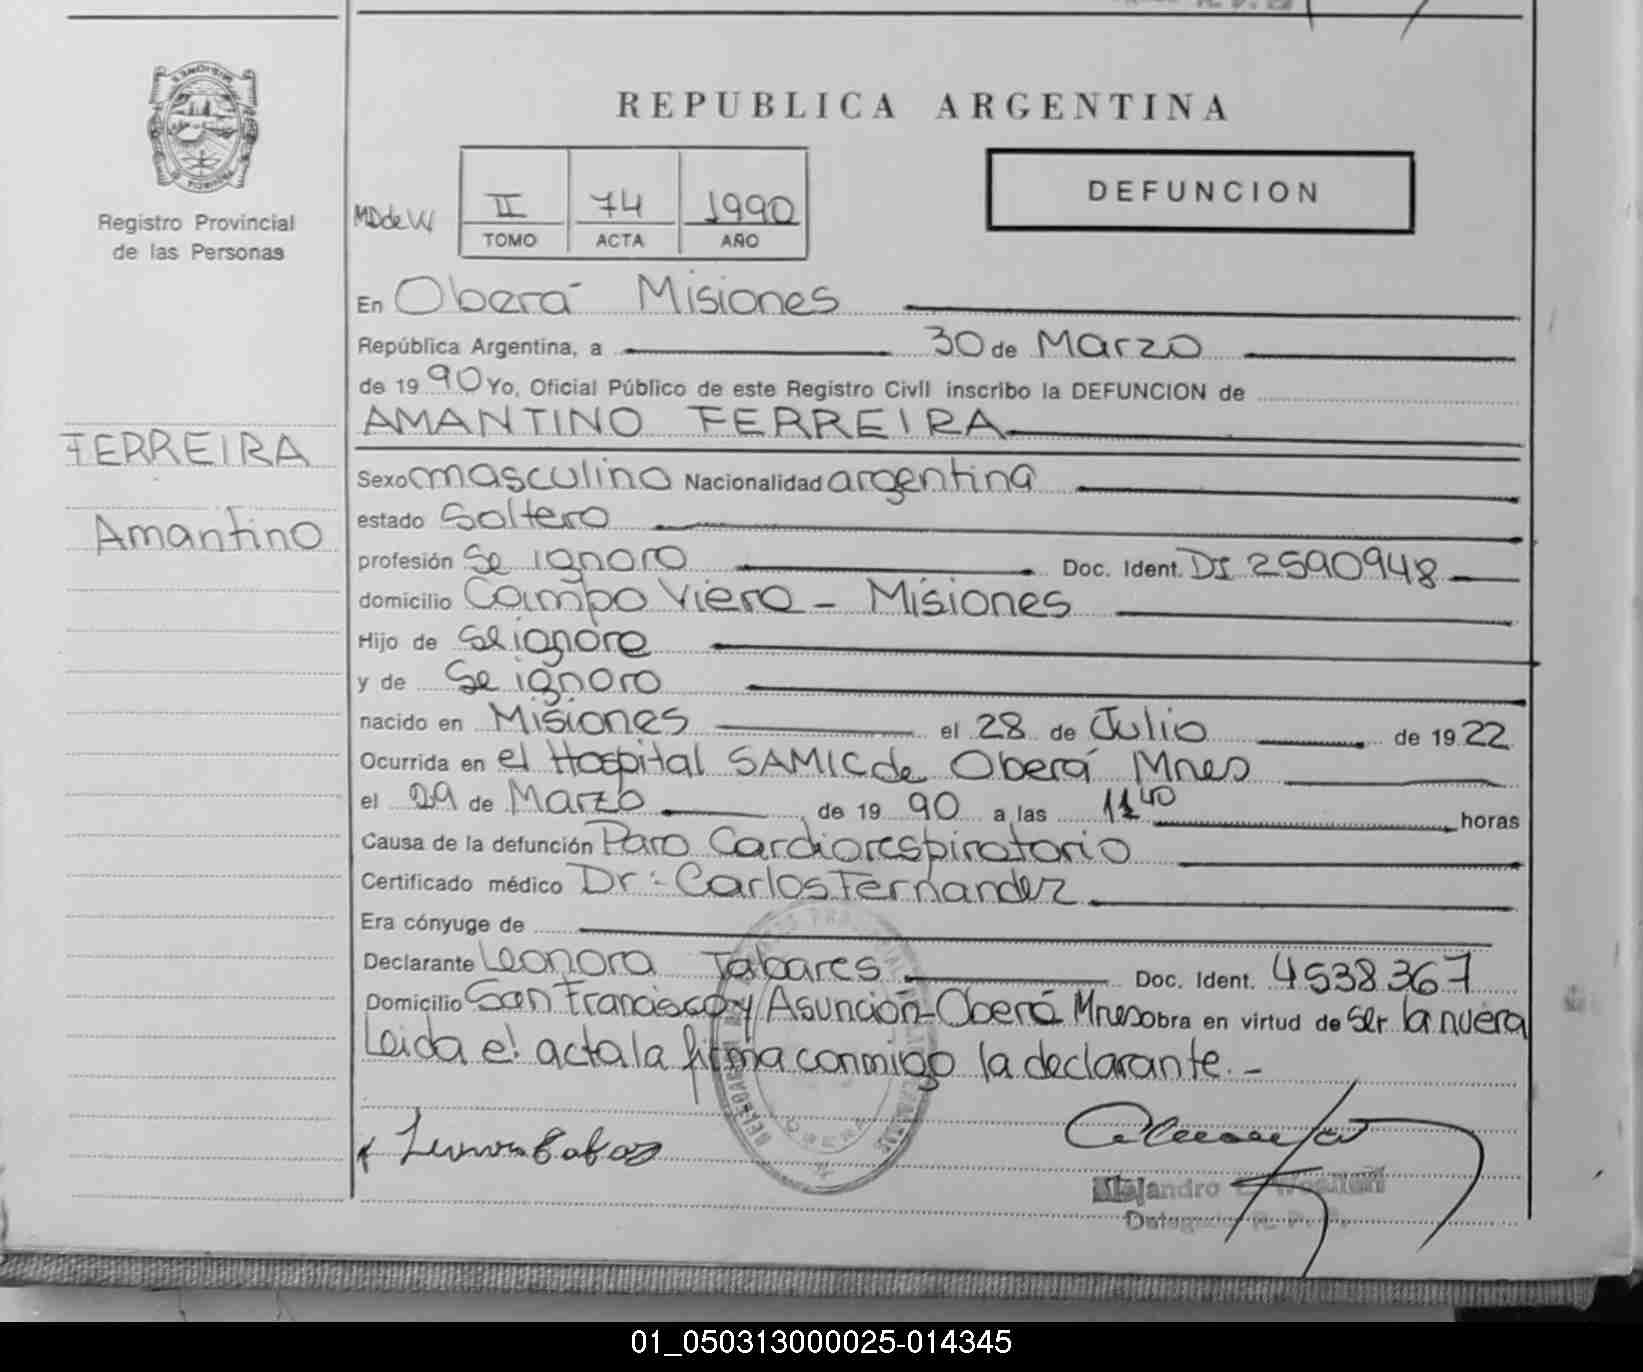 REPUBLICA ARGENTINA
Registro Provincial
de las Personas
MDdeW
II 74 1990
TOMO ACTA AÑO
DEFUNCION
En Oberá Misiones
República Argentina, a 30 de Marzo
de 1990 Yo, Oficial Público de este Registro Civil inscribo la DEFUNCION de
AMANTINO FERREIRA
FERREIRA
Amantino
Sexo masculino Nacionalidad argentina
estado Soltero
profesión Se ignoro Doc. Ident. DI 2590948
domicilio Campo Viero - Misiones
Hijo de Se ignora
y de Se ignoro
nacido en Misiones el 28 de Julio de 1922
Ocurrida en el Hospital SAMIC de Oberá Mnes
el 29 de Marzo de 1990 a las 11 40 horas
Causa de la defunción Paro Cardiorespiratorio
Certificado médico Dr: Carlos Fernandez
Era cónyuge de
Declarante Leonora Tabares Doc. Ident. 4538367
Domicilio San Francisco y Asunción-Oberá Mnes obra en virtud de ser la nuera
Leida el acta la firma conmigo la declarante.-
Alejandro
01_050313000025-014345